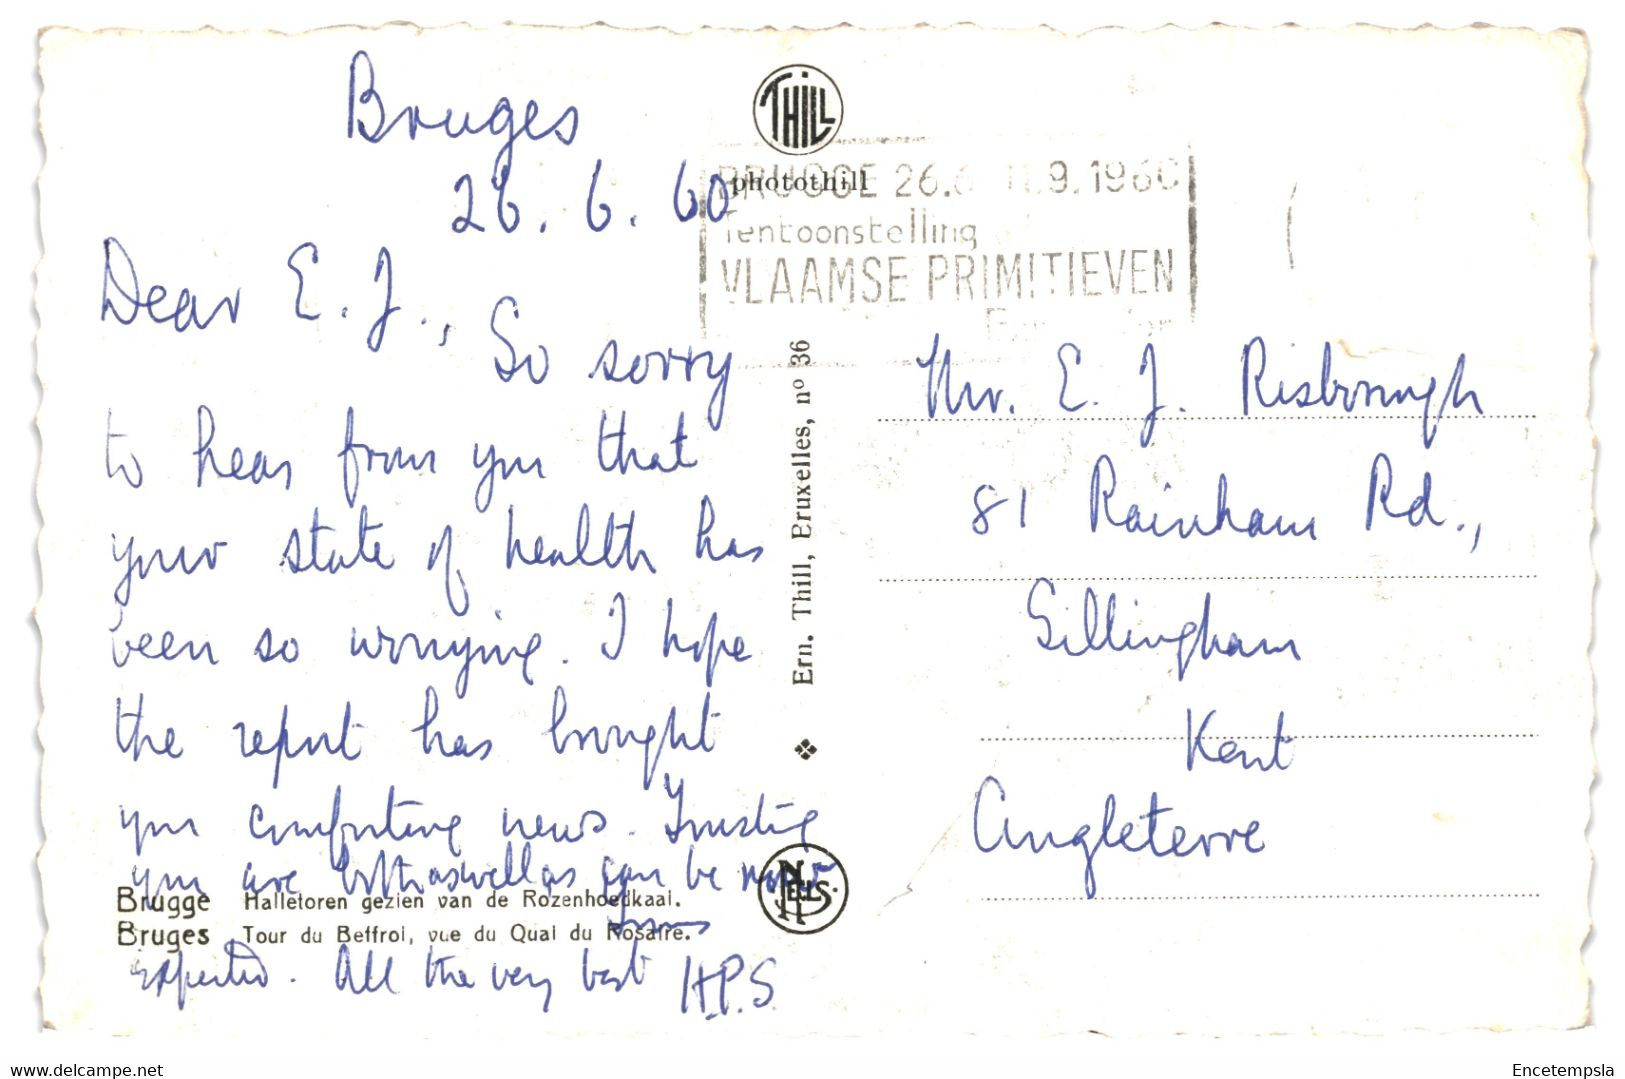 Bruges
26.6.60
Dear E.J.,
So sorry
to hear from you that
your state of health has
been so worrying. I hope
the report has brought
you comforting news. Trusting
you are both as well as can be now
expected. All the very best
Yours
H.P.S.
Brugge Halletoren gezien van de Rozenhoedkaai.
Bruges Tour du Beffroi, vue du Quai du Rosaire.
THILL
photothill
BRUGGE 26.6 11.9.1960
Tentoonstelling
VLAAMSE PRIMITIEVEN
Ern. Thill, Bruxelles, nº 36
NELS
Mr. E. J. Risborough
81 Rainham Rd.,
Gillingham
Kent
Angleterre
www.delcampe.net
Encetempsla